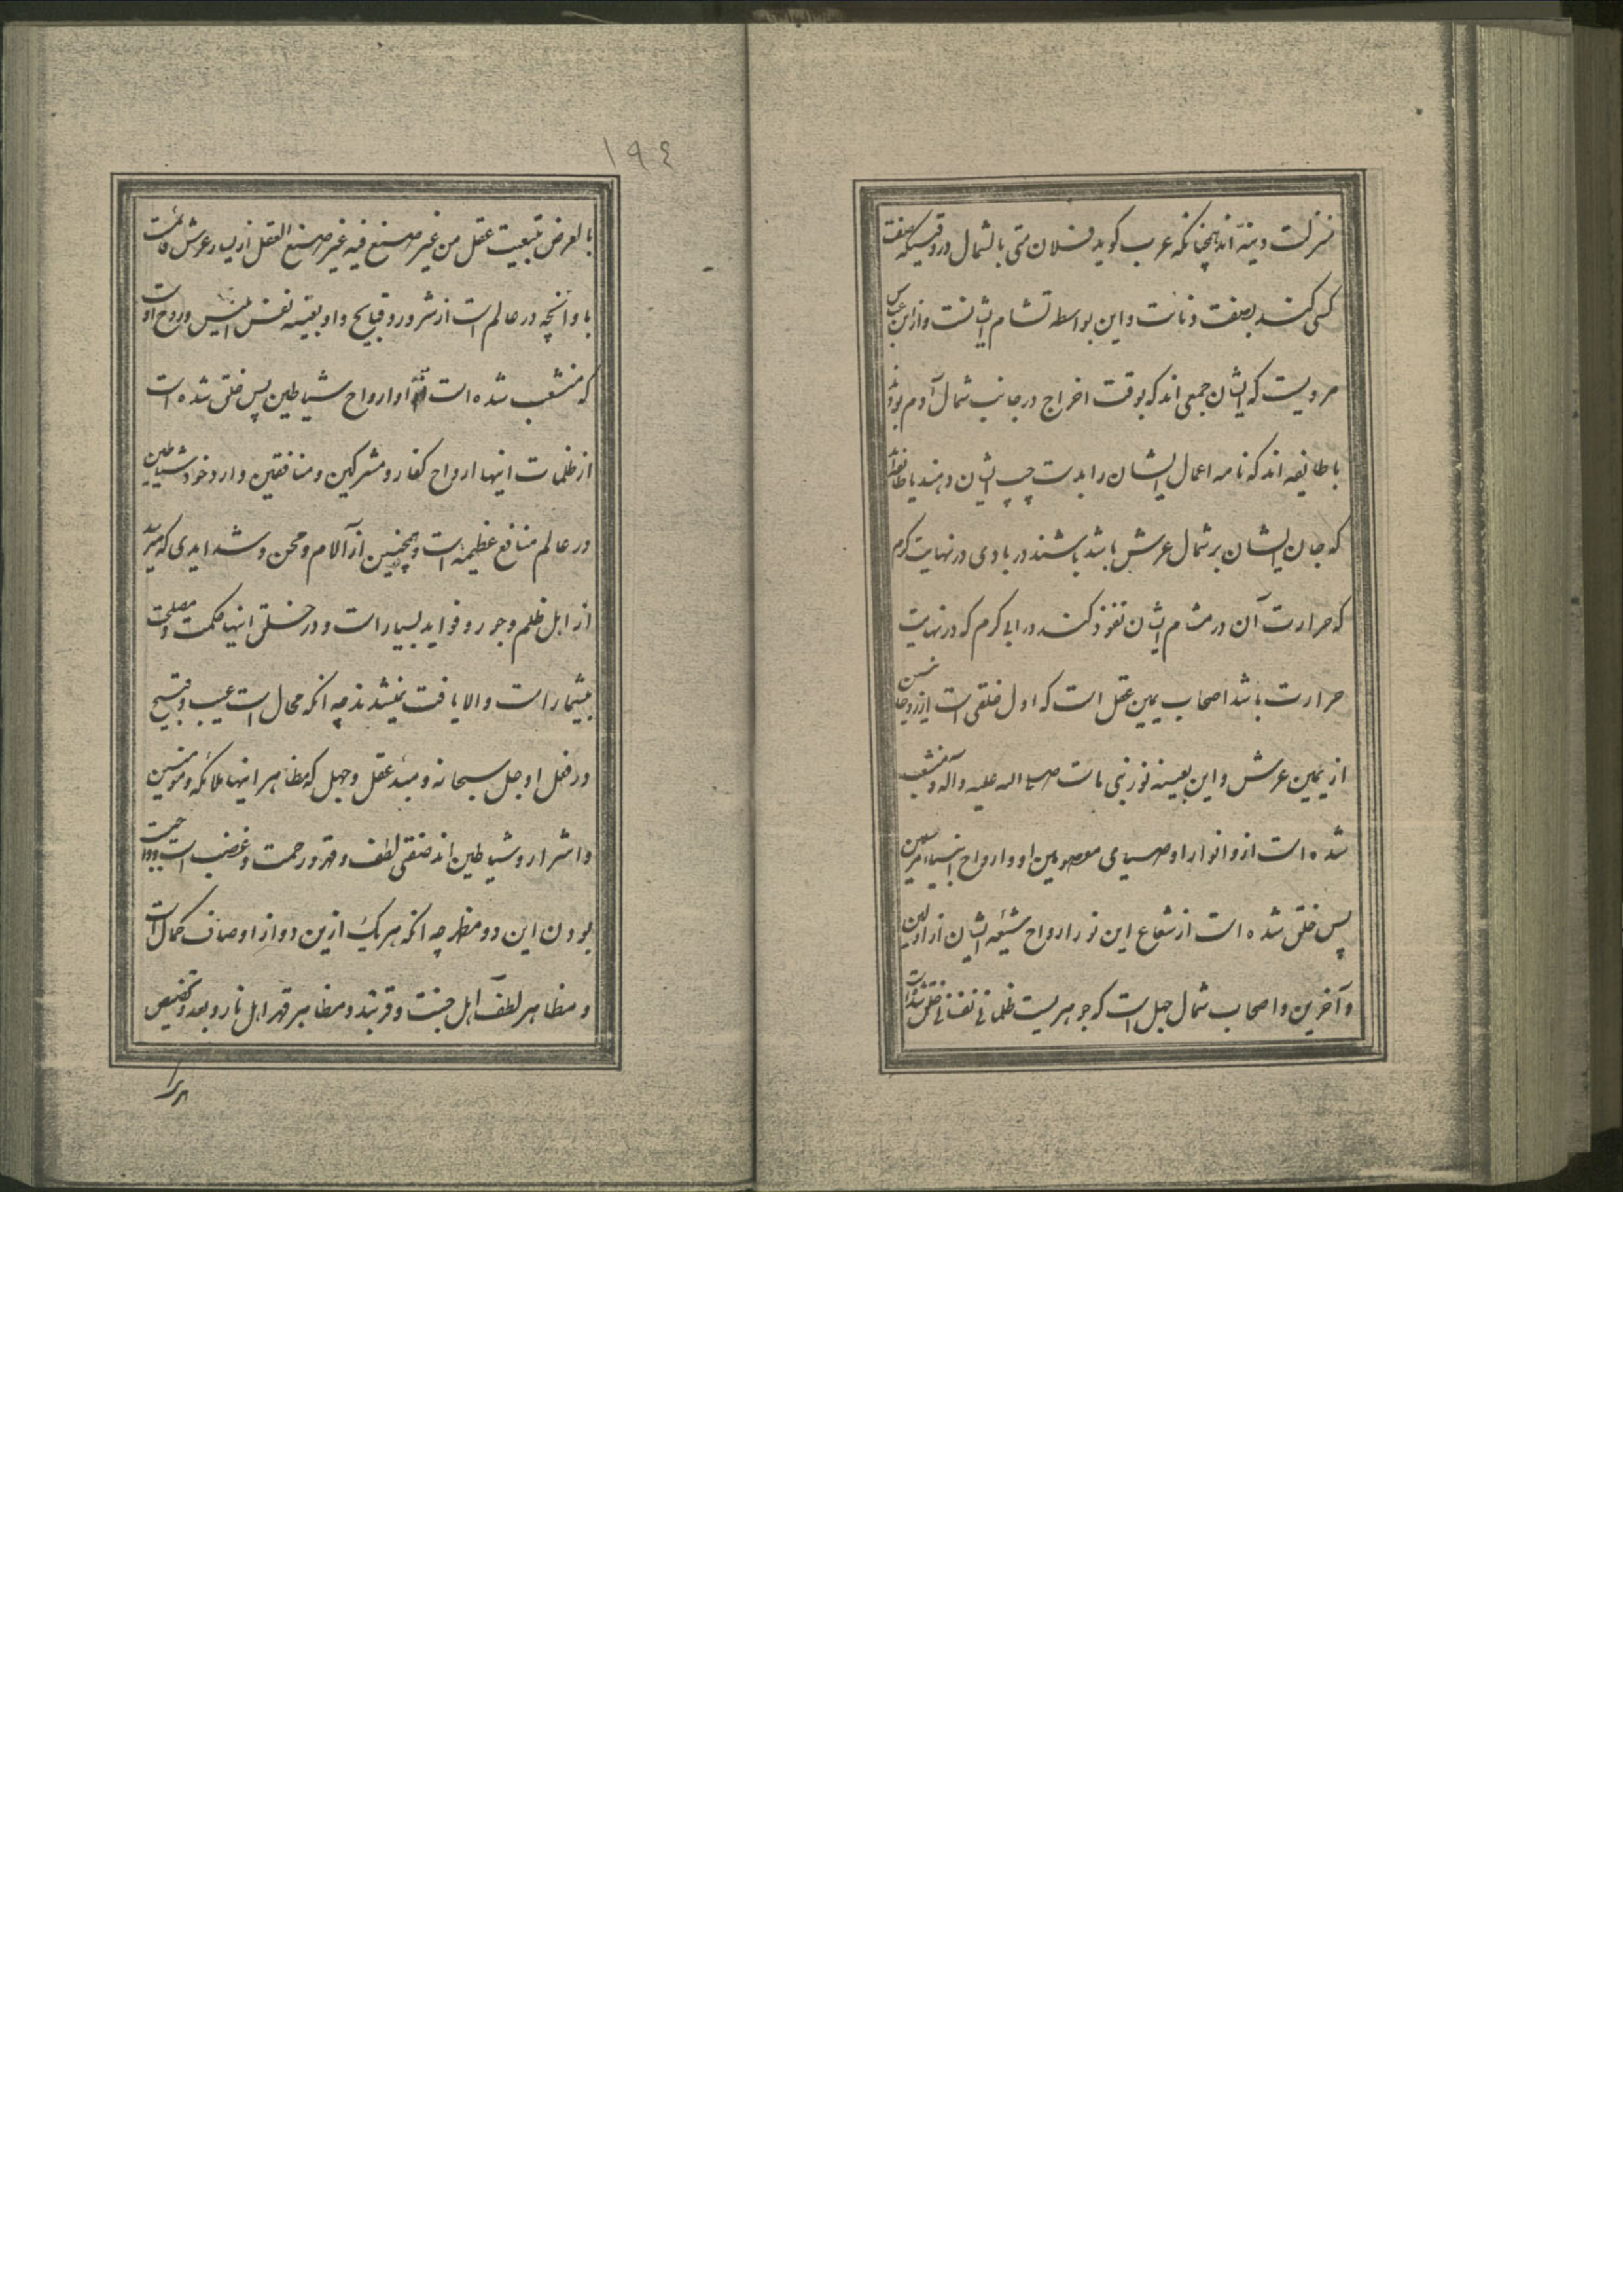 منزلت دنیه‌اند همچنانکه عرب کوید فلان منی بالشمال در وقتیکه صفت
کسی کنند بصفت دنائت و این بواسطه تشام ایشانست و از ابن عباس
مرویست که ایشان جمعی‌اند که بوقت اخراج در جانب شمال آدم بودند
یا طایفه‌اند که نامه اعمال ایشان را بدست چپ ایشان دهند یا طائفه
که جان ایشان بر شمال عرش باشد باشند در بادی در نهایت کرم
که حرارت آن در مشام ایشان نفوذ کند در ابی کرم که در نهایت
حرارت باشد اصحاب یمین عقل است که اول خلقی است از روحانیین
از یمین عرش و این بعینه نور نبی ماست صلی الله علیه و آله و منشعب
شده است ازو انوار اوصیای معصومین او و ارواح انبیاء مرسلین
پس خلق شده است از شعاع این نور ارواح شیعه ایشان از اولین
و آخرین و اصحاب شمال جهل است که جوهریست ظلمانی نفسانی خلق شده است
١٩٤
بالعرض بتبعیت عقل من غیر صنع فیه غیر صنع العقل از یسار عرش قائمست
باو آنچه در عالم است از شرور و قبایح و او بعینه نفس ابلیس و روح اوست
که منشعب شده است از او ارواح شیاطین پس خلق شده است
از ظلمات اینها ارواح کفار و مشرکین و منافقین و از وجود شیاطین
در عالم منافع عظیمه است و همچنین از آلام و محن و شدایدی که میرسد
از اهل ظلم و جور و فواید بسیار است و در خلق اینها حکمت و مصلحت
بیشمار است و الا یافت نمیشدند چه انکه محال است عیب و قبیح
در فعل او جل سبحانه و مبدء عقل و جهل که مظاهر اینها ملائکه و مومنین
و اشرار و شیاطین‌اند صفتی لطف و قهر و رحمت و غضب است و واجبست
بودن این دو مظهر چه انکه هریک ازین دو از اوصاف کمال است
و مظاهر لطف اهل جنت و قربند و مظاهر قهر اهل نار و بعد و تخصیص
هریک